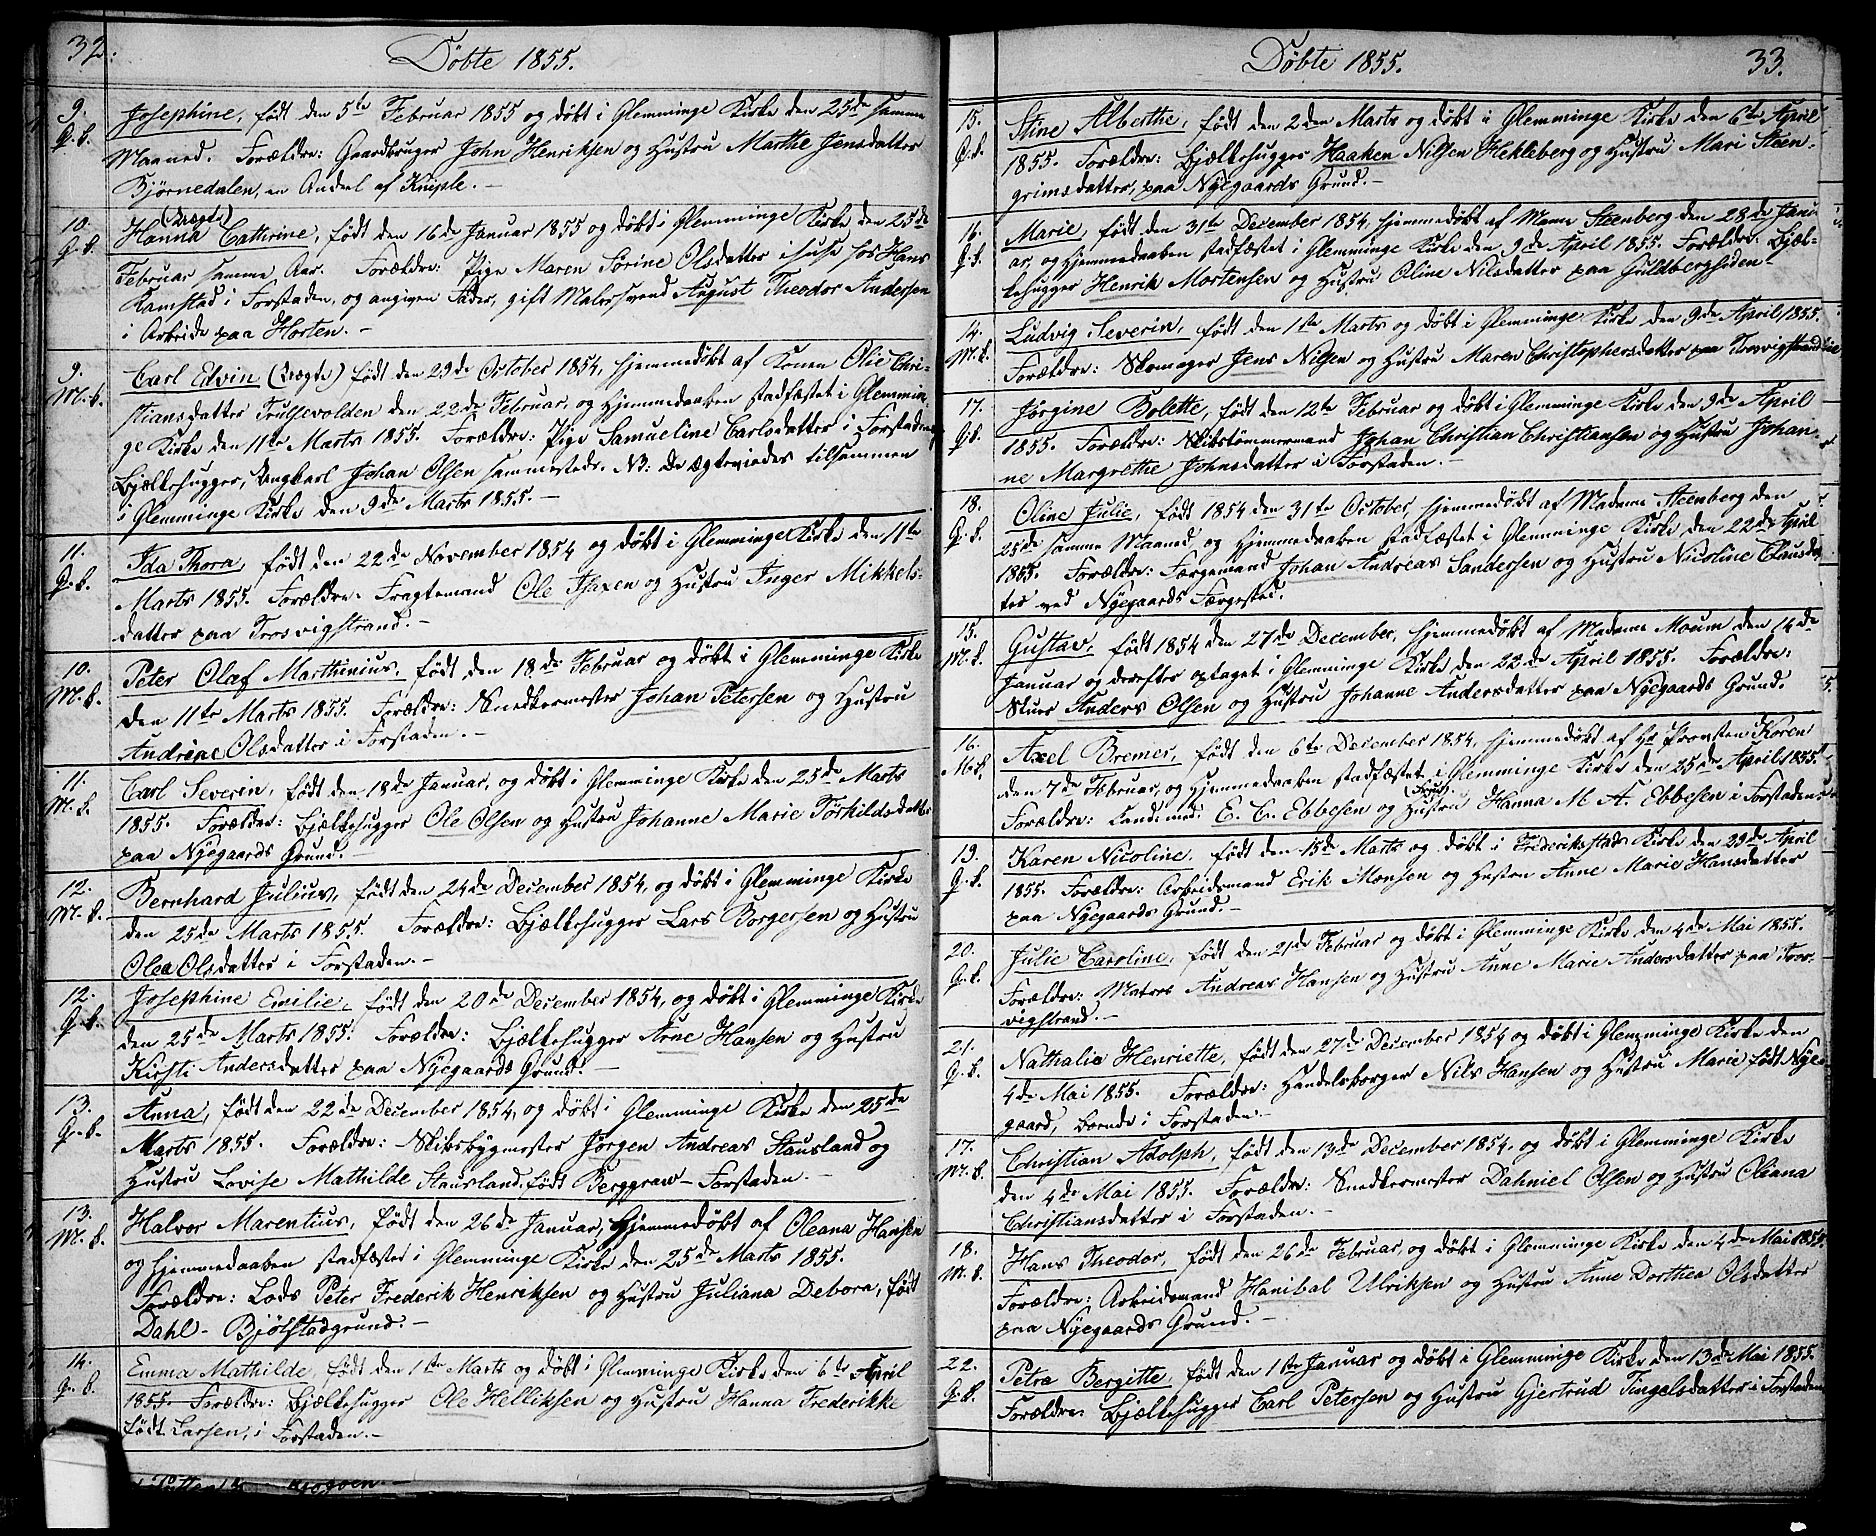 32.
Döbte 1855.
9. Josephine, födt den 5te Februar 1855 og döbt i Glemminge Kirke den 25de samme
P.b. Maaned. Forældre: Gaardbruger John Henriksen og Hustru Marthe Jensdatter
Bjørnedalen, en Andeel af Kniple.-
(Uægte)
10. Hanna Cathrine, födt den 16de Januar 1855 og döbt i Glemminge Kirke den 25de
P.b. Februar samme Aar. Forældre: Pige Maren Sörine Olsdatter i huse hos Hans
Kamstad i Forstaden, og angiven Fader, gift Malersvend August Theodor Andersen
i Arbeide paa Horten.-
9. Carl Edvin (Uægte) födt den 29de October 1854, hjemmedöbt af Konen Olie Chri-
M.b. stiansdatter Trulsevolden den 22de Februar, og Hjemmedaaben stadfæstet i Glemmin-
ge Kirke den 11te Marts 1855. Forældre: Pige Samueline Carlsdatter i Forstaden
Bjælkehugger, Ungkarl Johan Olsen sammesteds. NB: De ægteviedes tilsammen
i Glemminge Kirke den 9de Marts 1855.-
11. Ida Thora, födt den 22de November 1854 og döbt i Glemminge Kirke den 11te
P.b. Marts 1855. Forældre: Fragtemand Ole Isaxen og Hustru Inger Mikkels-
datter paa Trosvigstrand.-
10. Peter Olaf Marthinius, födt den 18de Februar og döbt i Glemminge Kirke
M.b. den 11te Marts 1855. Forældre: Snedkermester Johan Petersen og Hustru
Andrine Olsdatter i Forstaden.-
11. Carl Severin, födt den 18de Januar, og döbt i Glemminge Kirke den 25de Marts
M.b. 1855. Forældre: Bjælkehugger Ole Olsen og Hustru Johanne Marie Törkildsdatter
paa Nyegaards Grund.-
12. Bernhard Julius, födt den 24de December 1854, og döbt i Glemminge Kirke
M.b. den 25de Marts 1855. Forældre: Bjælkehugger Lars Borgersen og Hustru
Olea Olsdatter i Forstaden.-
12. Josephine Emilie, födt den 20de December 1854, og döbt i Glemminge Kirke
P.b. den 25de Marts 1855. Forældre: Bjælkehugger Arne Hansen og Hustru
Kirsti Andersdatter paa Nyegaards Grund.-
13. Anna, födt den 22de December 1854, og döbt i Glemminge Kirke den 25de
P.b. Marts 1855. Forældre: Skibsbygmester Jörgen Andreas Stausland og
Hustru Lovise Mathilde Stausland, födt Berggraw - Forstaden.-
13. Halvor Marentius, födt den 26de Januar, Hjemmedöbt af Oleana Hansen
M.b. og Hjemmedaaben stadfæstet i Glemminge Kirke den 25de Marts 1855.
Forældre: Lods Peter Frederik Henriksen og Hustru Juliana Debora, födt
Dahl - Bjölstadgrund.-
14. Emma Mathilde, födt den 1ste Marts og döbt i Glemminge Kirke den 6te April
P.b. 1855. Forældre: Bjælkehugger Ole Helliksen og Hustru Hanna Frederikke
födt Larsen, i Forstaden.-
Döbte 1855.
33.
15. Stine Alberthe, födt den 2den Marts og döbt i Glemminge Kirke den 6te April
P.b. 1855. Forældre: Bjælkehugger Haaken Nilsen Hekleberg og Hustru Mari Steen-
grimsdatter, paa Nyegaards Grund.-
16. Marie, födt den 31te December 1854, hjemmedöbt af Mame Steenberg den 28de Janu-
P.b. ar, og Hjemmedaaben stadfæstet i Glemminge Kirke den 9de April 1855. Forældre: Bjæl-
kehugger Henrik Mortensen og Hustru Oline Nilsdatter paa Guldbergsiden-
14. Ludvig Severin, födt den 1ste Marts og döbt i Glemminge Kirke den 9de April 1855.
M.b. Forældre: Skomager Jens Nilsen og Hustru Maren Christophersdatter paa Trosvigstrand
17. Jörgine Bolette, födt den 12te Februar og döbt i Glemminge Kirke den 9de April
P.b. 1855. Forældre: Skibstömmermand Johan Christian Christiansen og Hustru Johan-
ne Margrethe Johnsdatter i Forstaden.-
18. Oline Julie, födt 1854 den 31te October, hjemmedöbt af Madame Steenberg den
P.b. 25de samme Maaned, og Hjemmedaaben stadfæstet i Glemminge Kirke den 22de April
1855. Forældre: Færgemand Johan Andreas Sandersen og Hustru Nicoline Clausdat-
ter ved Nyegaards Færgested.
15. Gustav, födt 1854 den 27de December, hjemmedöbt af Madame Moum den 14de
M.b. Januar og derefter optaget i Glemminge Kirke den 22de April 1855. Forældre:
Skuer Anders Olsen og Hustru Johanne Andersdatter paa Nyegaards Grund.
16. Axel Bremer, födt den 6te December 1854, hjemmedöbt af Hr Provsten Koren
M.b. den 7de Februar, og Hjemmedaaben stadfæstet i Glemminge Kirke den 25de April 1855.
Forældre: Cand: med: E. C. Ebbesen og Hustru Hanna M. A. Ebbesen i Forstaden
19. Karen Nicoline, födt den 15de Marts og döbt i Frederikstads Kirke den 29de April
P.b. 1855. Forældre: Arbeidsmand Erik Monsen og Hustru Anne Marie Hansdatter
paa Nyegaards Grund.-
20. Julie Caroline, födt den 21de Februar og döbt i Glemminge Kirke den 4de Mai 1855.
P.b. Forældre: Matros Andreas Hansen og Hustru Anne Marie Andersdatter paa Tros-
vigstrand.-
21. Nathalia Henriette, födt den 27de December 1854 og döbt i Glemminge Kirke den
P.b. 4de Mai 1855. Forældre: Handelsborger Nils Hansen og Hustru Marie födt Nye-
gaard, boende i Forstaden.-
17. Christian Adolph, födt den 13de December 1854, og döbt i Glemminge Kirke
M.b. den 4de Mai 1855. Forældre: Snedkermester Dahniel Olsen og Hustru Oliana
Christiansdatter i Forstaden.-
18. Hans Theodor, födt den 26de Februar, og döbt i Glemminge Kirke den 4de Mai 1855.
M.b. Forældre: Arbeidsmand Hanibal Ulriksen og Hustru Anne Dorthea Olsdatter
paa Nyegaards Grund.-
22. Petra Bergitte, födt den 1ste Januar og döbt i Glemminge Kirke den 13de Mai 1855.
P.b. Forældre: Bjælkehugger Carl Petersen og Hustru Gjertrud Tingelsdatter i Forstaden